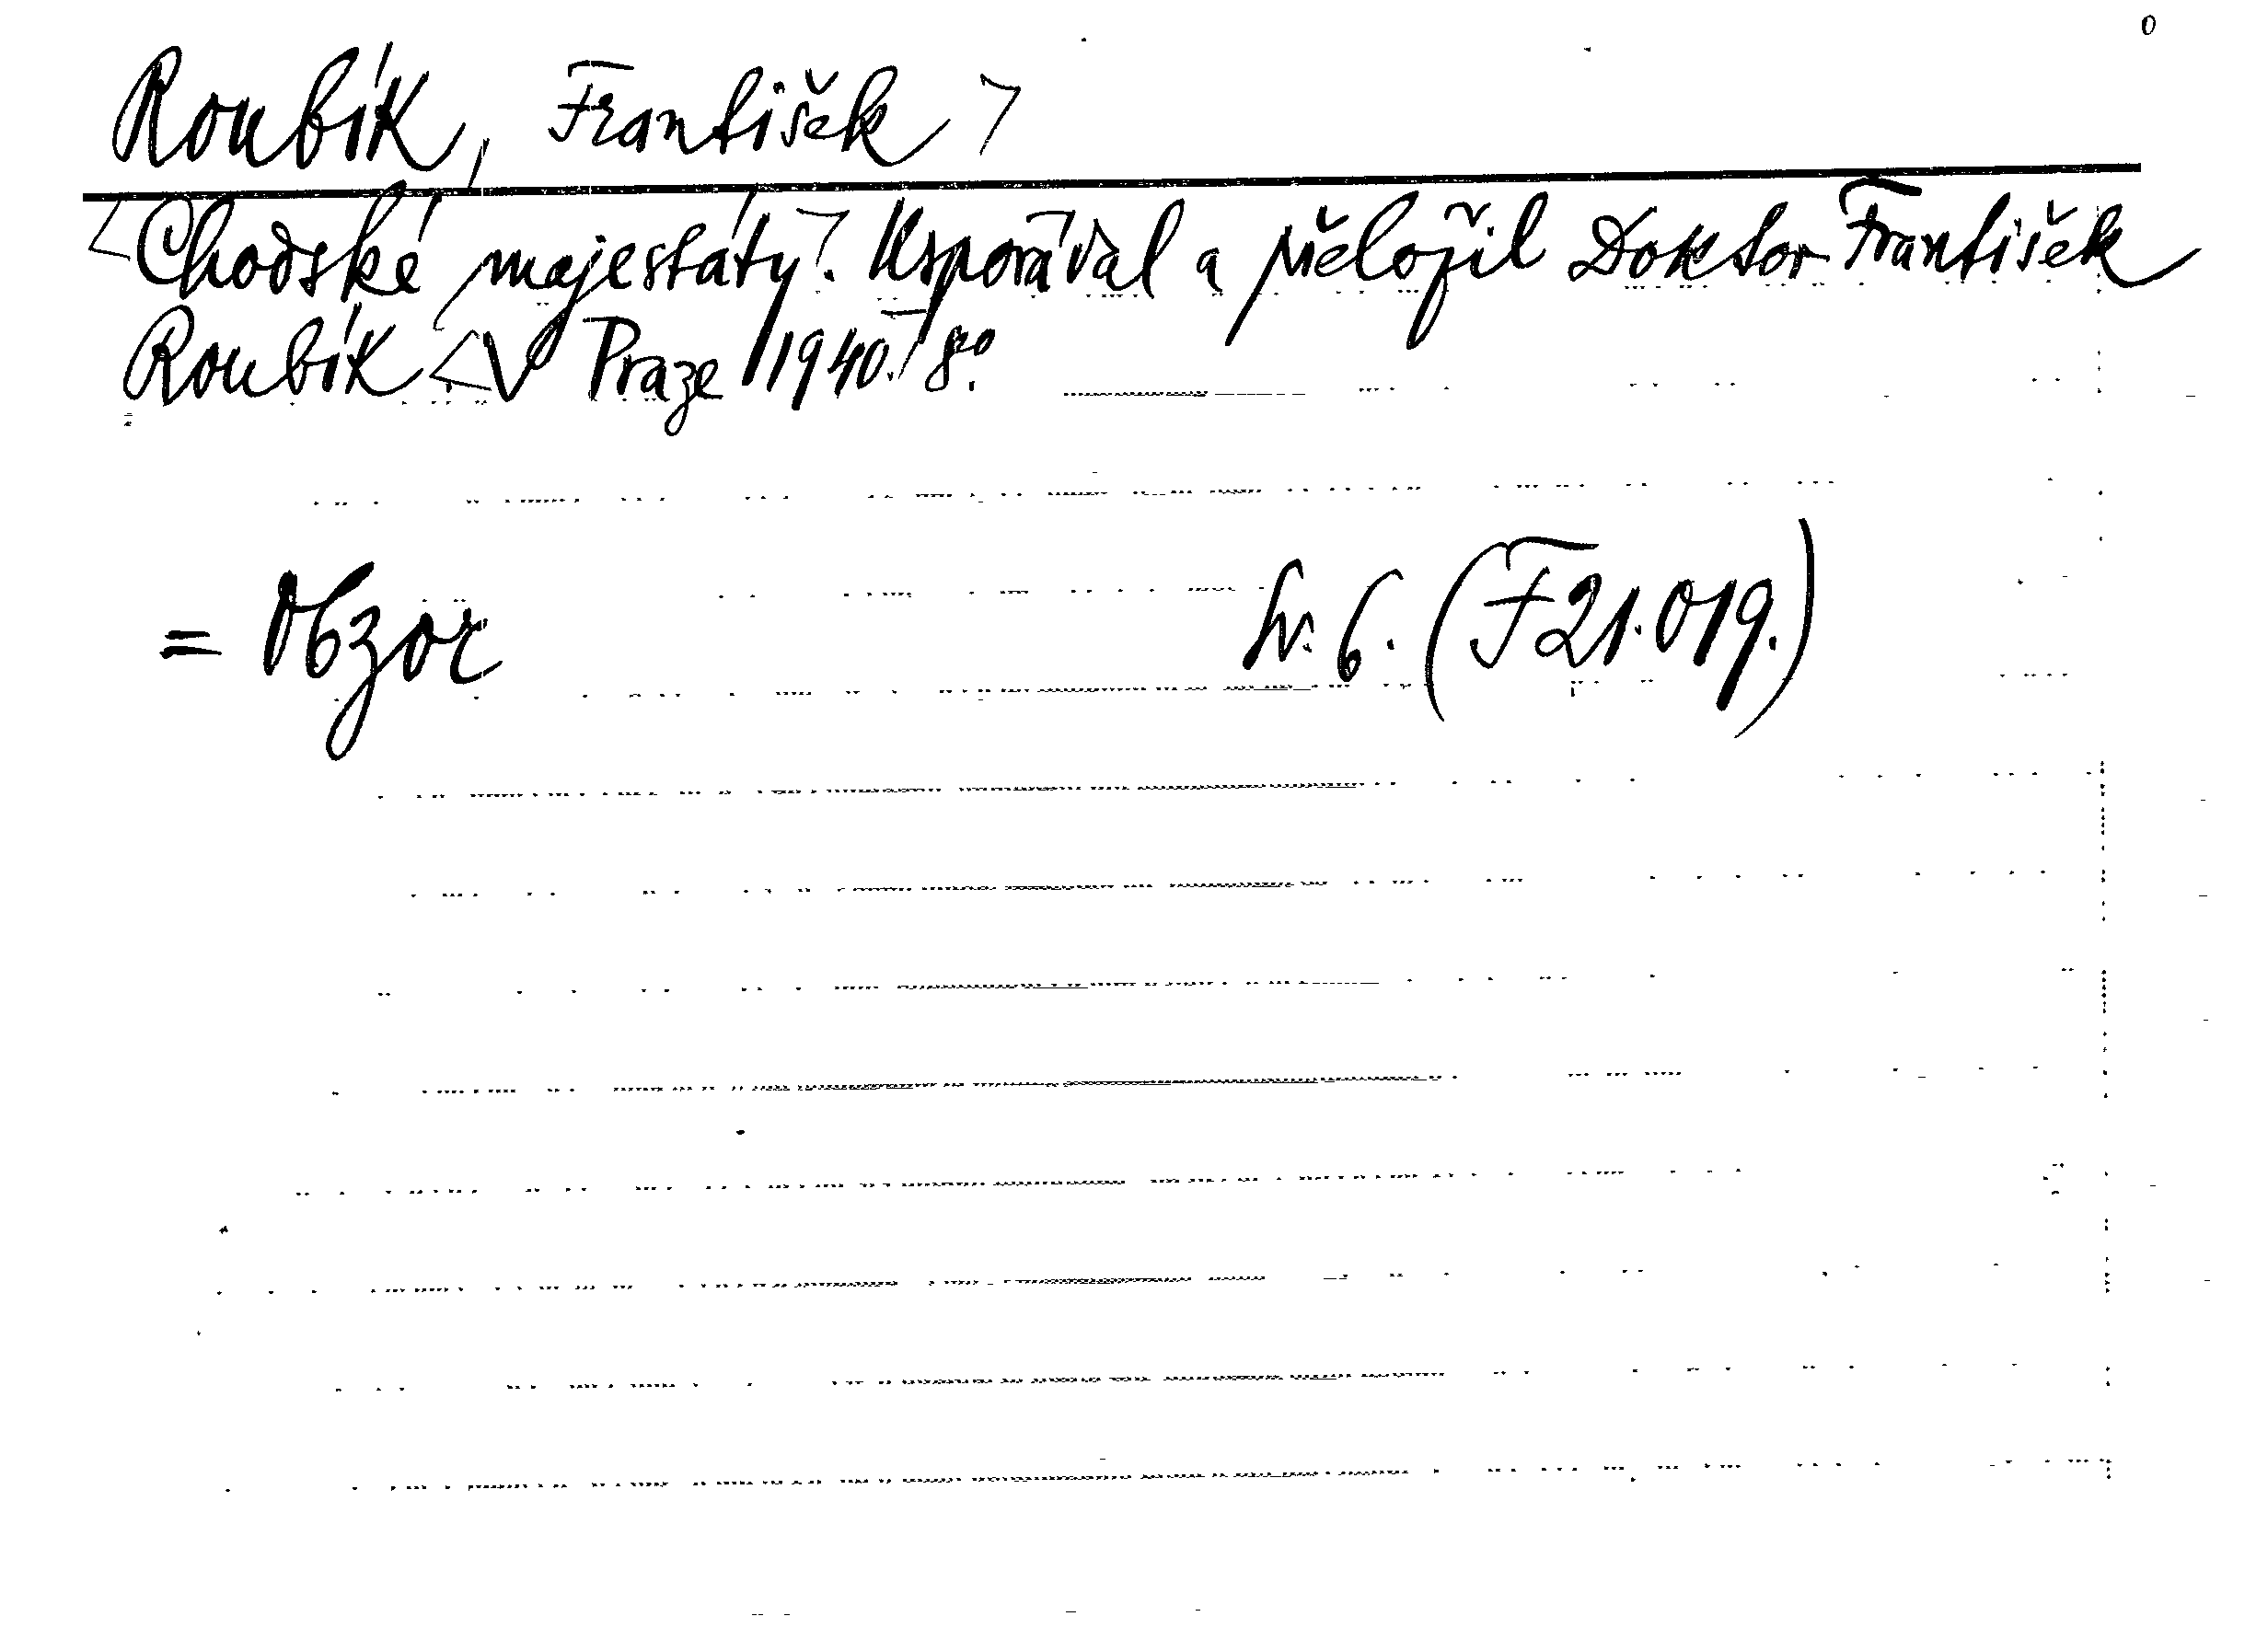 Roubík, František
Chodské majestáty. Uspořádal a přeložil Doktor František
Roubík. V Praze 1940. 8º.
= Obzor Sv. 6. (F 21.019.)